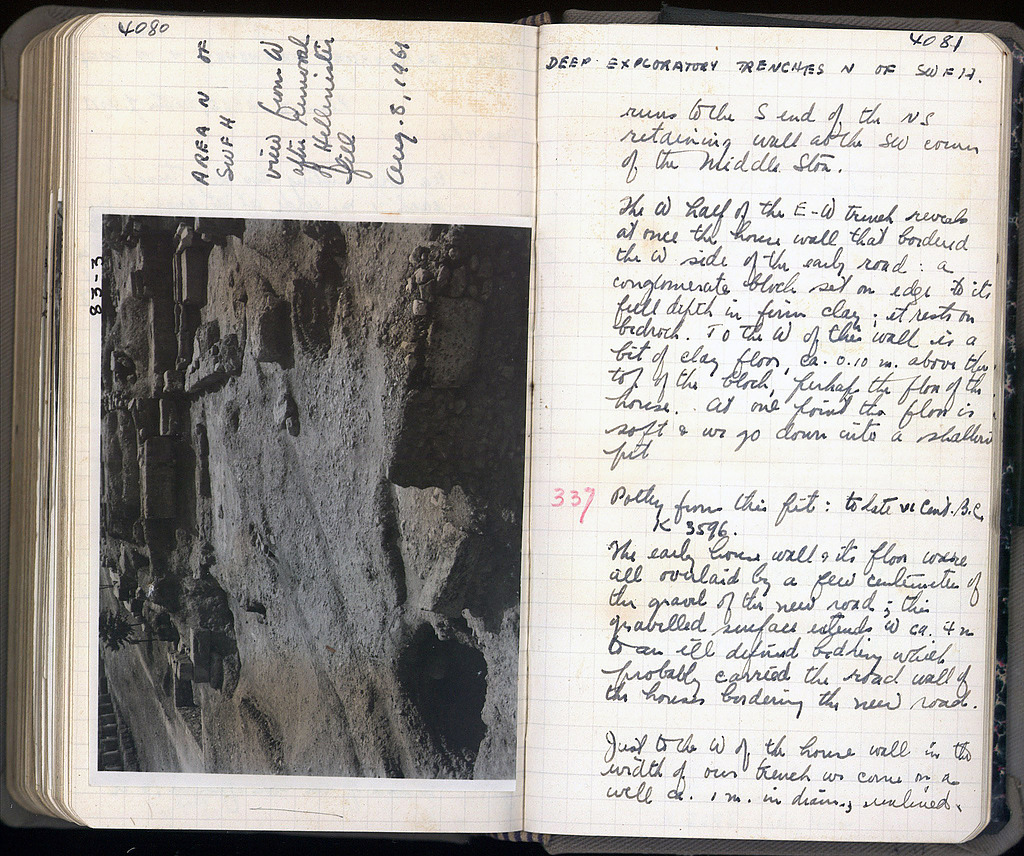 4080
AREA N OF
SWFH
view from W
after removal
of Hellenistic
fill
Aug. 8, 1961
83-3
4081
DEEP EXPLORATORY TRENCHES N OF SWFH.
runs to the S end of the NS
retaining wall at the SW corner
of the Middle Stoa.
The W half of the E-W trench reveals
at once the house wall that bordered
the W side of the early road: a
conglomerate block set on edge to its
full depth in firm clay; it rests on
bedrock. To the W of this wall is a
bit of clay floor, ca. 0.10 m. above the
top of the block, perhaps the floor of the
house. At one point the floor is
soft & we go down into a shallow
pit
337 Pottery from this pit: to date VI Cent. B.C.
K 3596.
The early house wall & its floor were
all overlaid by a few centimeters of
the gravel of the new road; this
gravelled surface extends W ca. 4 m
to an ill defined bedding which
probably carried the road wall of
the houses bordering the new road.
Just to the W of the house wall in the
width of our trench we come on a
well ca. 1 m. in diam., unlined.